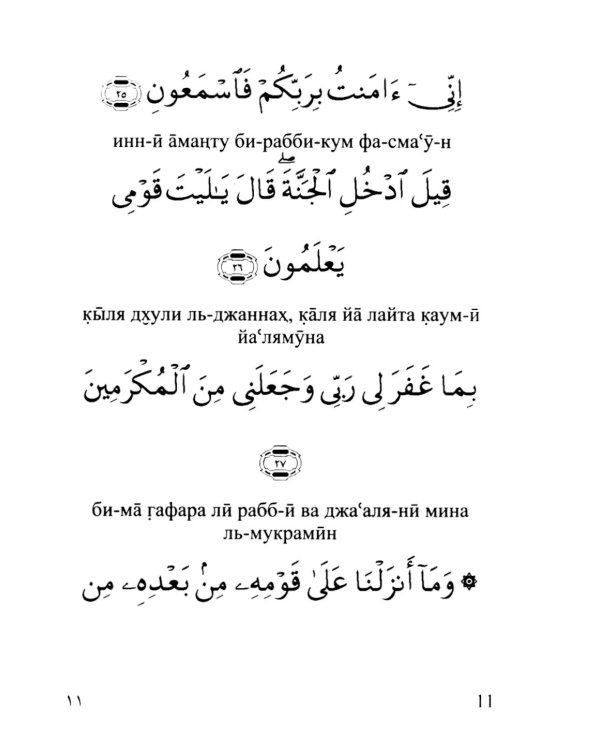 إِنِّىٓ ءَامَنتُ بِرَبِّكُمْ فَٱسْمَعُونِ ٢٥
инн-ӣ āмаӊту би-рабби-кум фа-сма‘ӯ-н
قِيلَ ٱدْخُلِ ٱلْجَنَّةَ ۖ قَالَ يَـٰلَيْتَ قَوْمِى
يَعْلَمُونَ ٢٦
қы̄ля дх̮ули ль-джаннах, қāля йā лайта қаум-ӣ
йа‘лямӯна
بِمَا غَفَرَ لِى رَبِّى وَجَعَلَنِى مِنَ ٱلْمُكْرَمِينَ
٢٧
би-мā г̣афара лӣ рабб-ӣ ва джа‘аля-нӣ мина
ль-мукрамӣн
۞ وَمَآ أَنزَلْنَا عَلَىٰ قَوْمِهِۦ مِنۢ بَعْدِهِۦ مِن
١١ 11